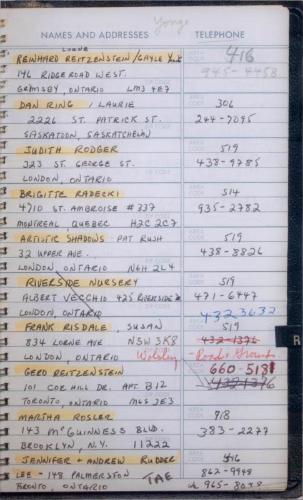 Yonge
NAMES AND ADDRESSES TELEPHONE
LORNE 416
REINHARD REITZENSTEIN / GAYLE 945-4458
146 RIDGEROAD WEST.
GRIMSBY, ONTARIO LM3 4E7
DAN RING / LAURIE 306
2226 ST. PATRICK ST. 244-7095
SASKATOON, SASKATCHEWAN
JUDITH RODGER 519
323 ST. GEORGE ST. 438-9785
LONDON, ONTARIO
BRIGITTE RADECKI 514
4710 ST. AMBROISE #337 935-2782
MONTREAL, QUEBEC H2C 2C7
ARTISTIC SHADOWS PAT RUSH 519
32 UPPER AVE. 438-8826
LONDON, ONTARIO N6H 2L4
RIVERSIDE NURSERY 519
ALBERT VECCHIO 425 RIVERSIDE 471-6447
LONDON, ONTARIO 432 3632
FRANK RISDALE, SUSAN 519
834 LORNE AVE N5W 3K8 432-1376
LONDON, ONTARIO Wolseley - Roads Ground
GERD REITZENSTEIN 660-5181
101 COE HILL DR. APT B12
TORONTO, ONTARIO M6S 3E3
MARTHA ROSLER 718
143 McGUINNESS BLVD. 383-2277
BROOKLYN, N.Y. 11222
JENNIFER + ANDREW RUDDER 416
LEE - 148 PALMERSTON TAE 862-9948
TORONTO, ONTARIO 965-8038
R